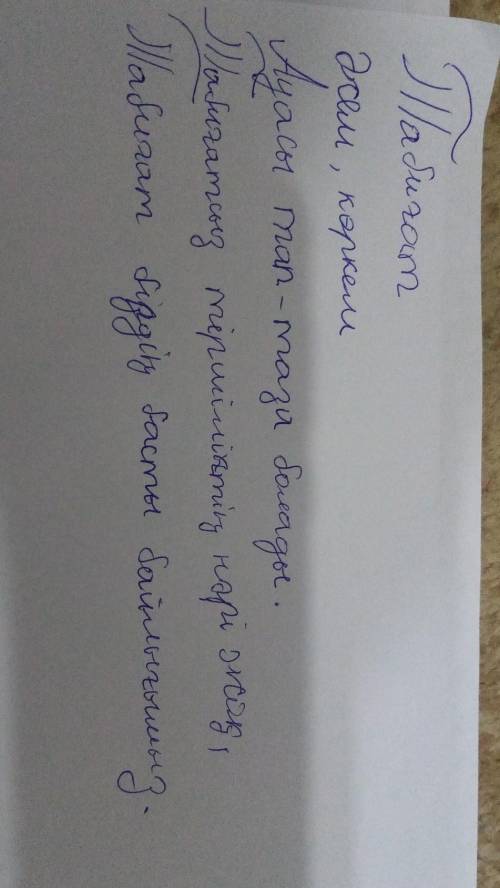 Табиғат
Әсем, көркем
Ауасы тап-таза болады.
Табиғатсыз тіршіліктің нәрі жоқ,
Табиғат біздің басты байлығымыз.